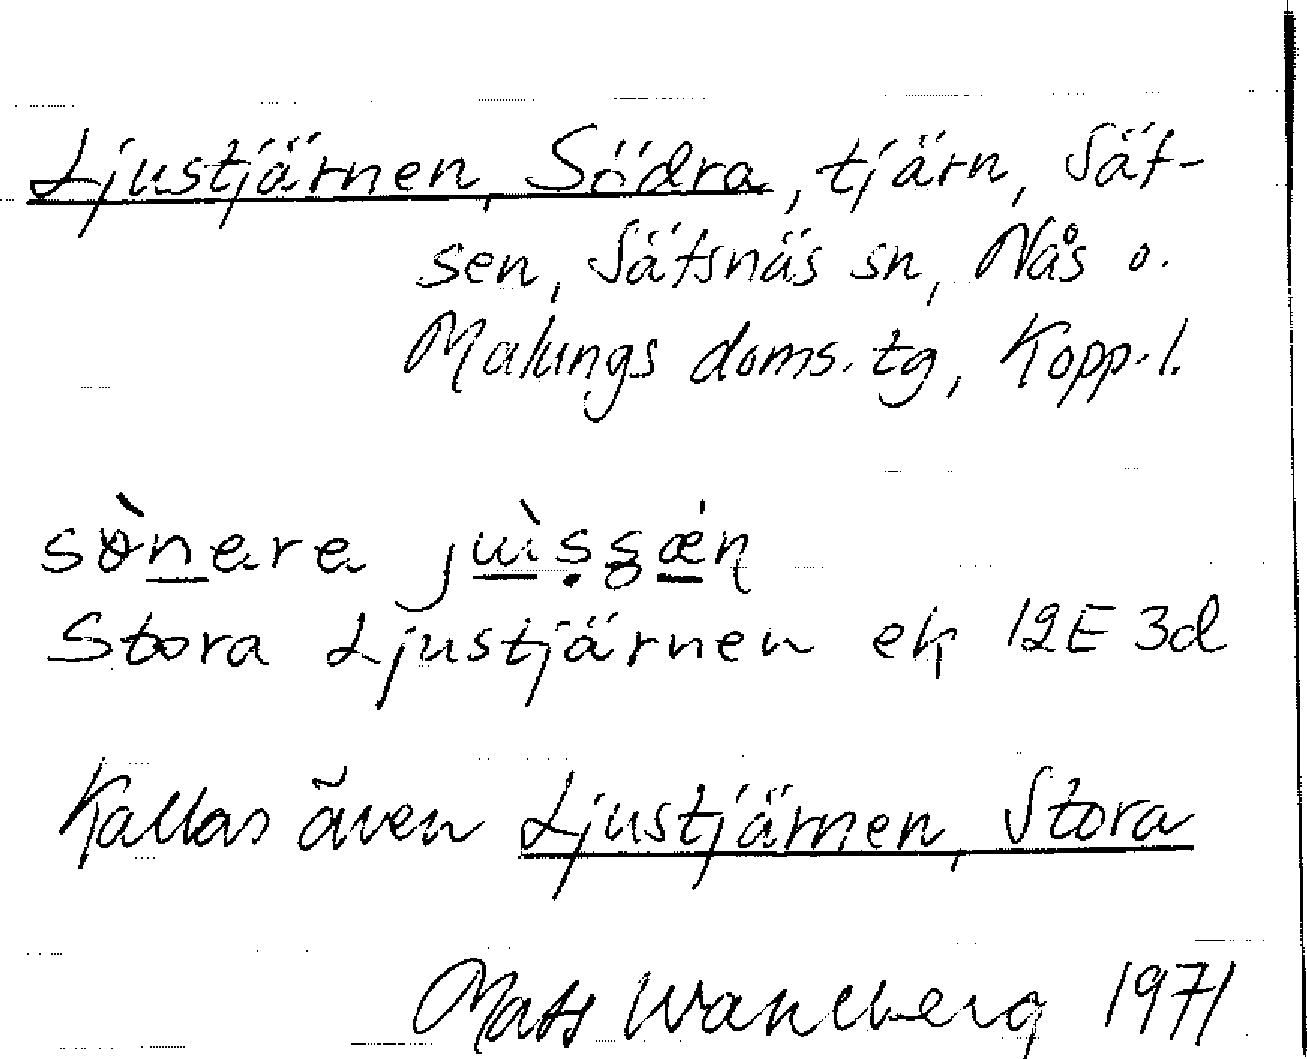 Ljustjärnen, Södra, tjärn, Sät-
sen, Sätsnäs sn, Nås o.
Malungs doms. tg, Kopp. l.
Stora Ljustjärnen ek 12E 3d
Kallas även Ljustjärnen, Stora
Mats Wahlberg 1971